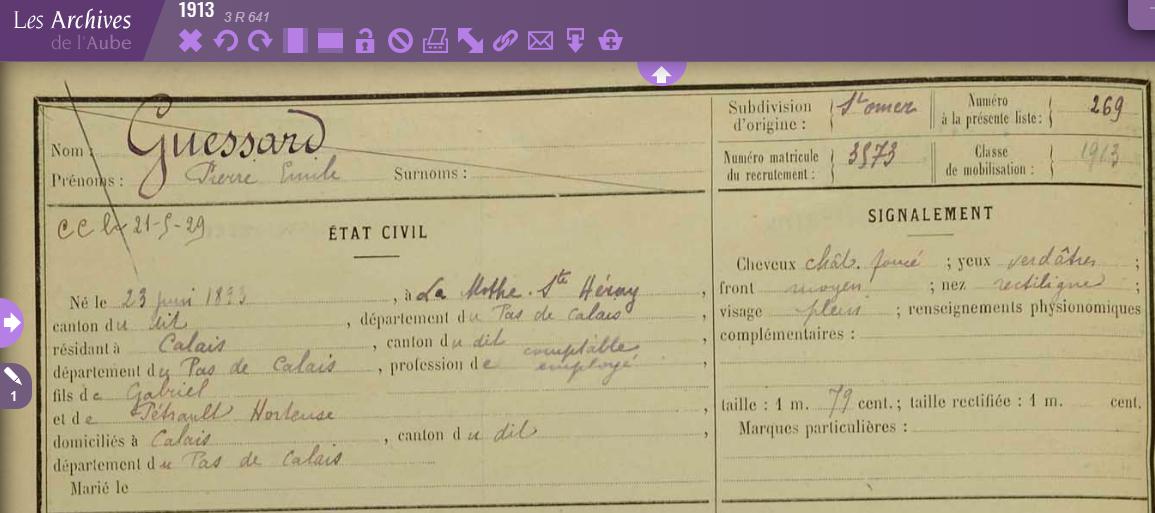 Les Archives
de l'Aube
1913
3 R 641
Subdivision d'origine : St omer
Numéro à la présente liste : 269
Nom : Guessard
Prénoms : Pierre Emile Surnoms :
Numéro matricule du recrutement : 3573
Classe de mobilisation : 1913
CC le 21-5-29
ÉTAT CIVIL
Né le 23 juin 1893, à La Mothe. Ste Héray,
canton du dit, département du Pas de Calais,
résidant à Calais, canton du dit,
département du Pas de Calais, profession de comptable
employé,
fils de Gabriel
et de Pétrault Hortense,
domiciliés à Calais, canton du dit,
département du Pas de Calais
Marié le
SIGNALEMENT
Cheveux chât. foncé ; yeux verdâtres ;
front moyen ; nez rectiligne ;
visage plein ; renseignements physionomiques
complémentaires :
taille : 1 m. 79 cent. ; taille rectifiée : 1 m. cent.
Marques particulières :
1